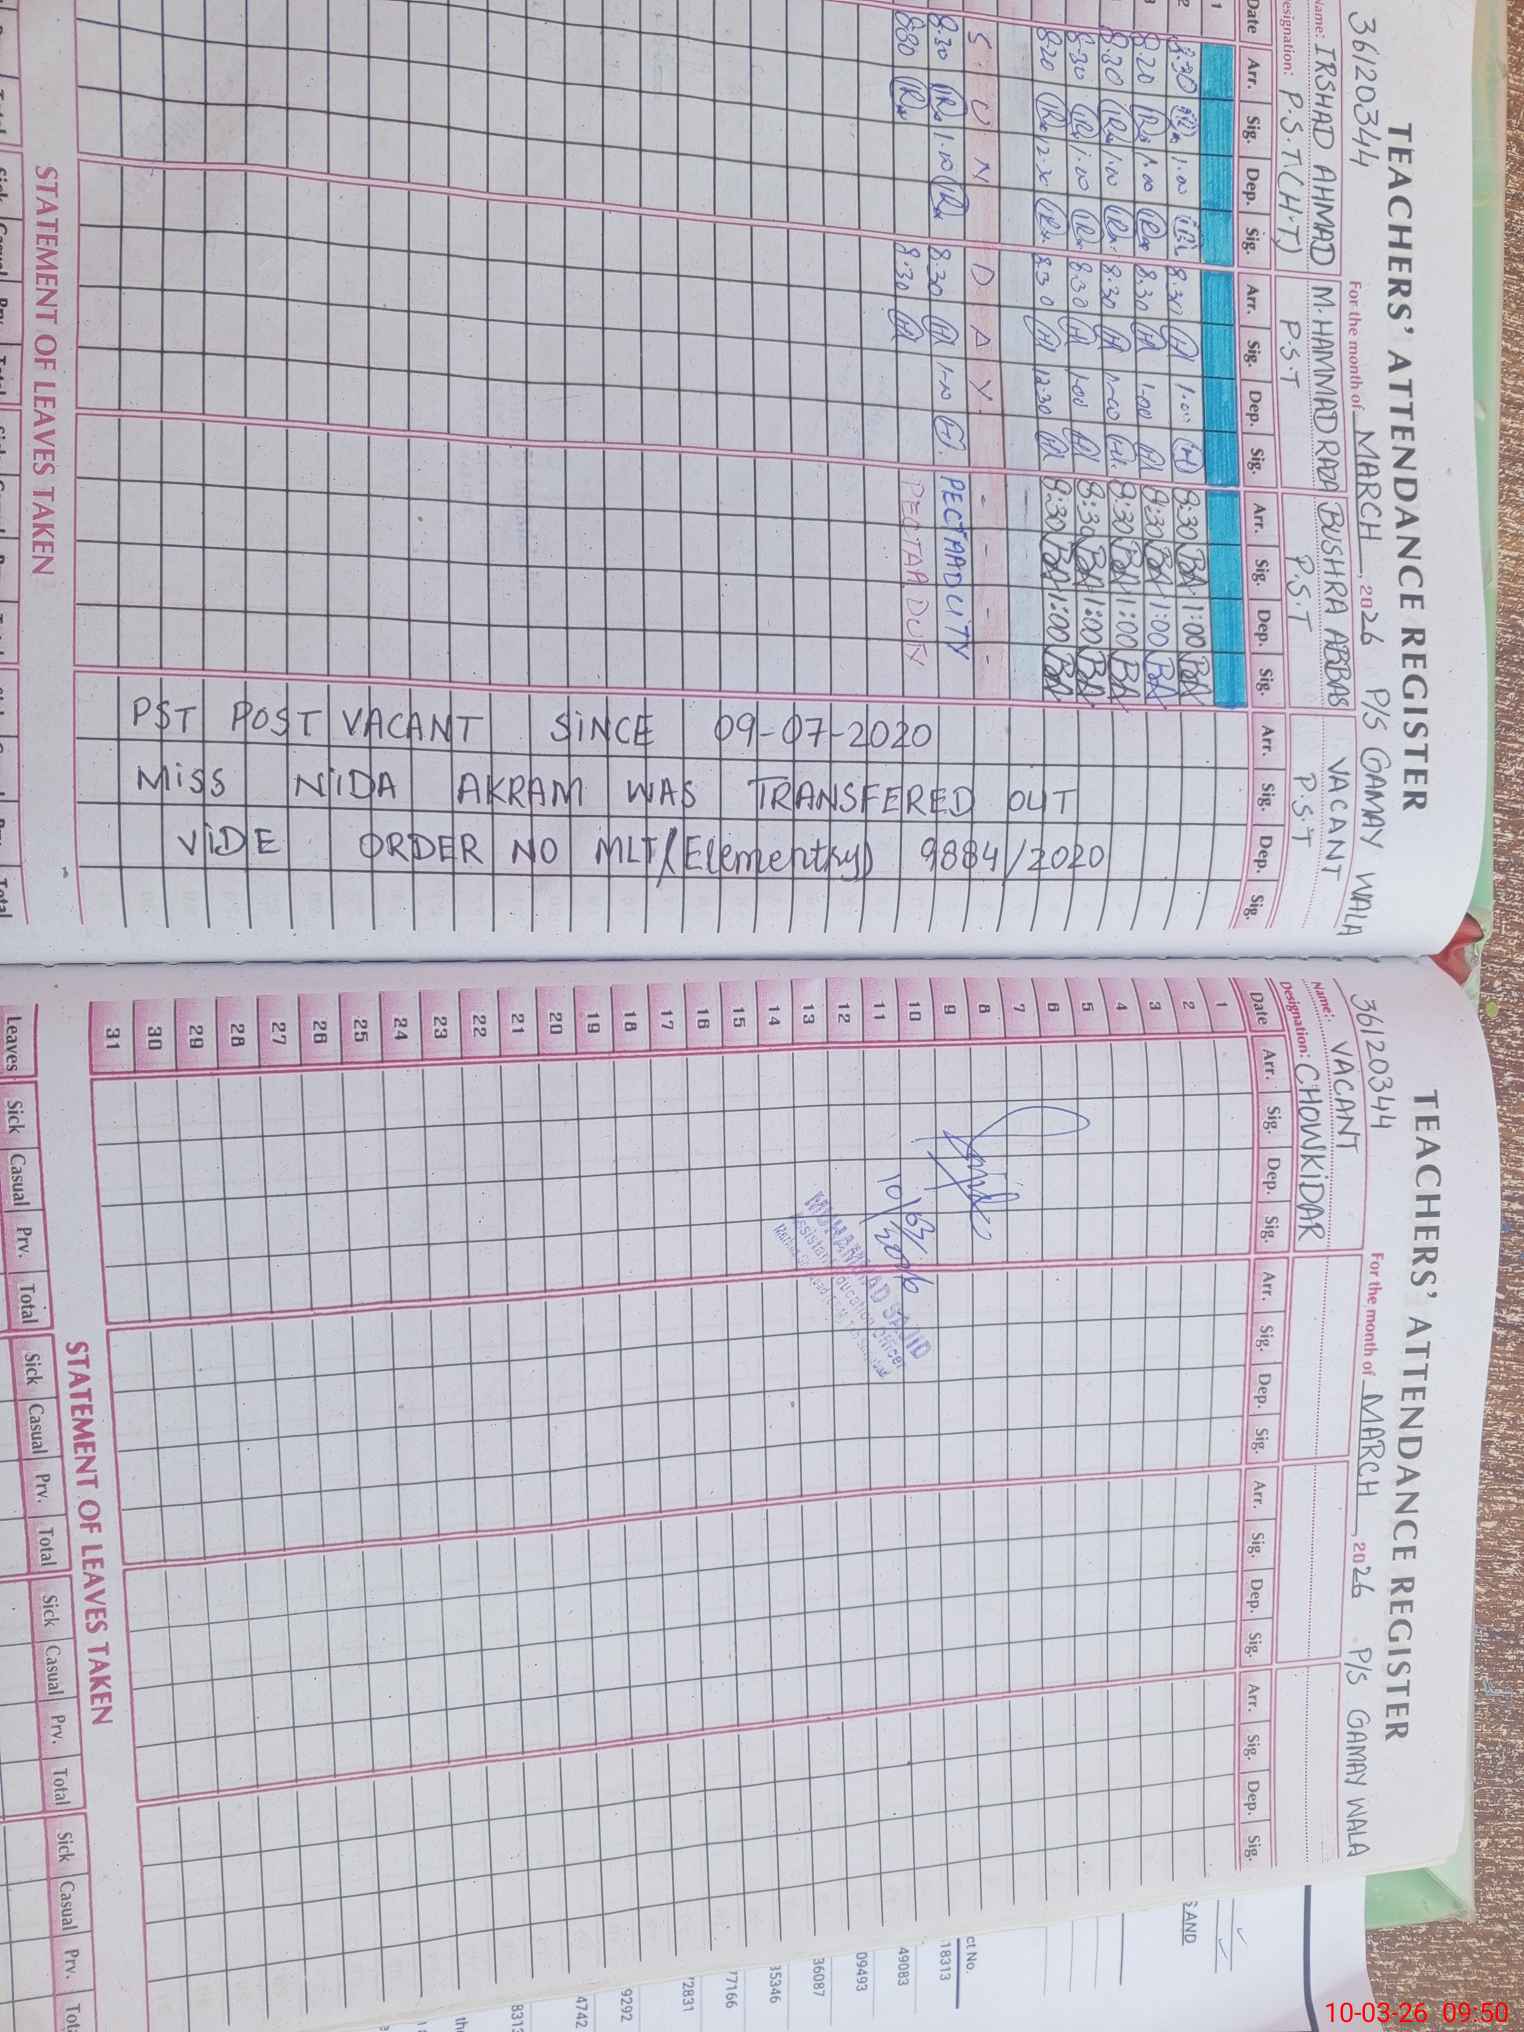 TEACHERS' ATTENDANCE REGISTER
36120344 For the month of MARCH, 2026 P/S GAMAY WALA
Name: IRSHAD AHMAD M. HAMMAD RAZA BUSHRA ABBAS VACANT
Designation: P.S.T(H.T) P.S.T P.S.T P.S.T
Date Arr. Sig. Dep. Sig. Arr. Sig. Dep. Sig. Arr. Sig. Dep. Sig. Arr. Sig. Dep. Sig.
1
2 8:30 1:00 8:30 1:00 8:30 BA 1:00 BA
8:30 1:00 8:30 1:00 8:30 BA 1:00 BA
8:30 1:00 8:30 1:00 8:30 BA 1:00 BA
8:30 1:00 8:30 1:00 8:30 BA 1:00 BA
8:30 8:30 12:30 8:30 BA 1:00 BA
S U N D A Y - - - -
8:30 8:30 PECTAA DUITY
8:30 8:30 PECTAA DUTY
PST POST VACANT SINCE 09-07-2020
MISS NIDA AKRAM WAS TRANSFERED OUT
VIDE ORDER NO MLT/(Elementry) 9884/2020
STATEMENT OF LEAVES TAKEN
TEACHERS' ATTENDANCE REGISTER
36120344 For the month of MARCH, 2026 P/S GAMAY WALA
Name: VACANT
Designation: CHOWKIDAR
Date Arr. Sig. Dep. Sig. Arr. Sig. Dep. Sig. Arr. Sig. Dep. Sig. Arr. Sig. Dep. Sig.
1
2
3
4
5
6
7
8
9
10
11
12
13
14
15
16
17
18
19
20
21
22
23
24
25
26
27
28
29
30
31
10/03/2026
MUHAMMAD SAJID
Assistant Education Officer
STATEMENT OF LEAVES TAKEN
Leaves Sick Casual Prv. Total Sick Casual Prv. Total Sick Casual Prv. Total Sick Casual Prv.
AND
ct No.
18313
49083
09493
36087
35346
77166
2831
9292
4742
10-03-26 09:50